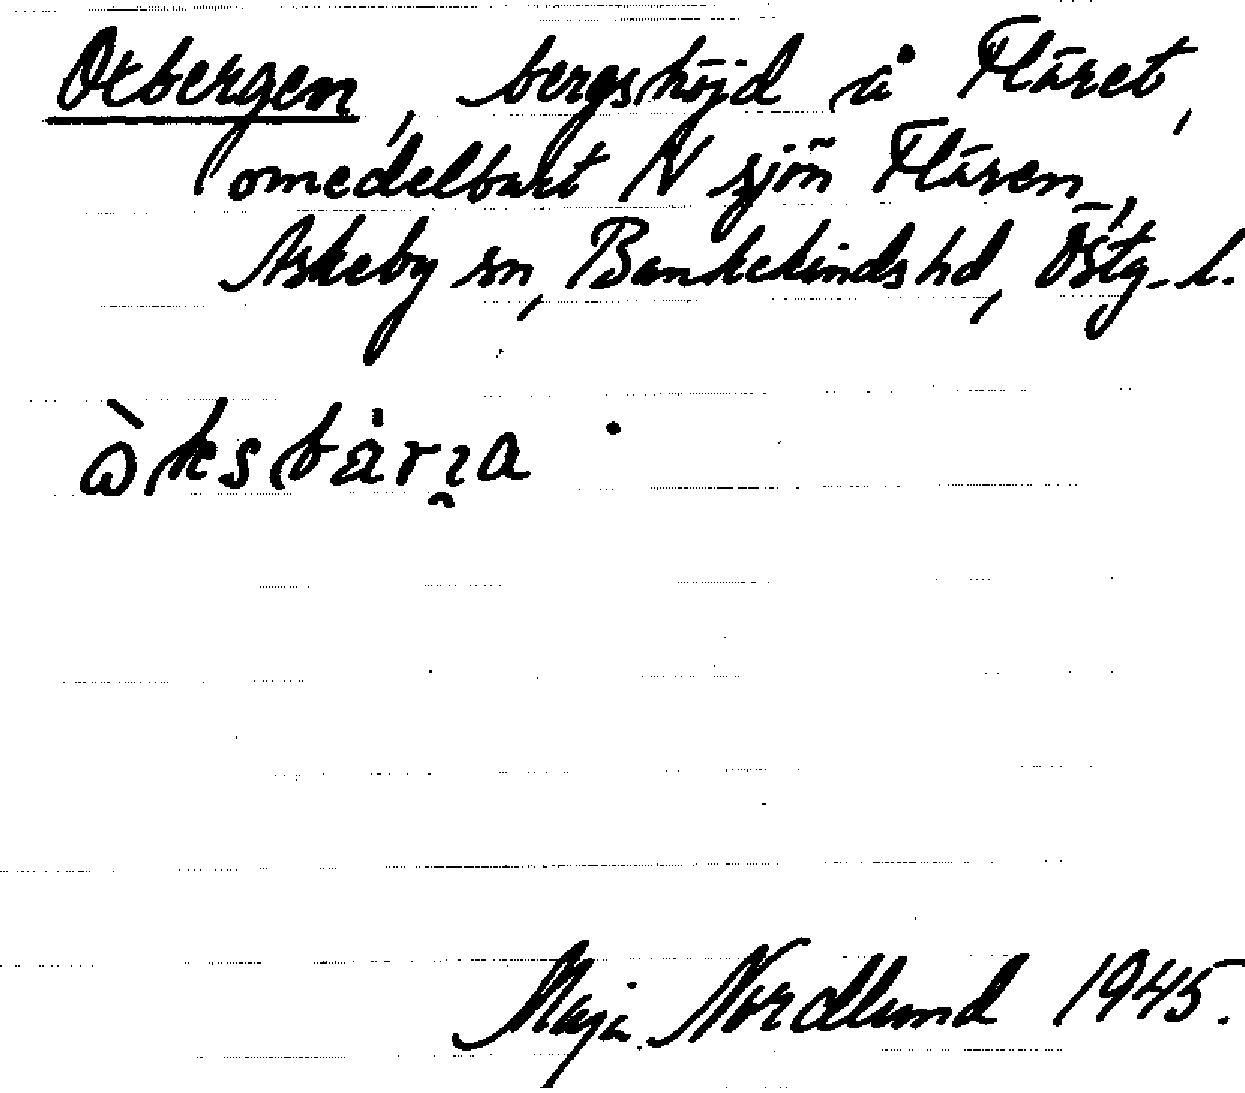 Oxbergen, bergshöjd å Fläret,
omedelbart N sjön Flären,
Askeby sn, Bankekinds hd, Östg. l.
ὼksbȧrı̯a .
Maja Nordlund 1945.